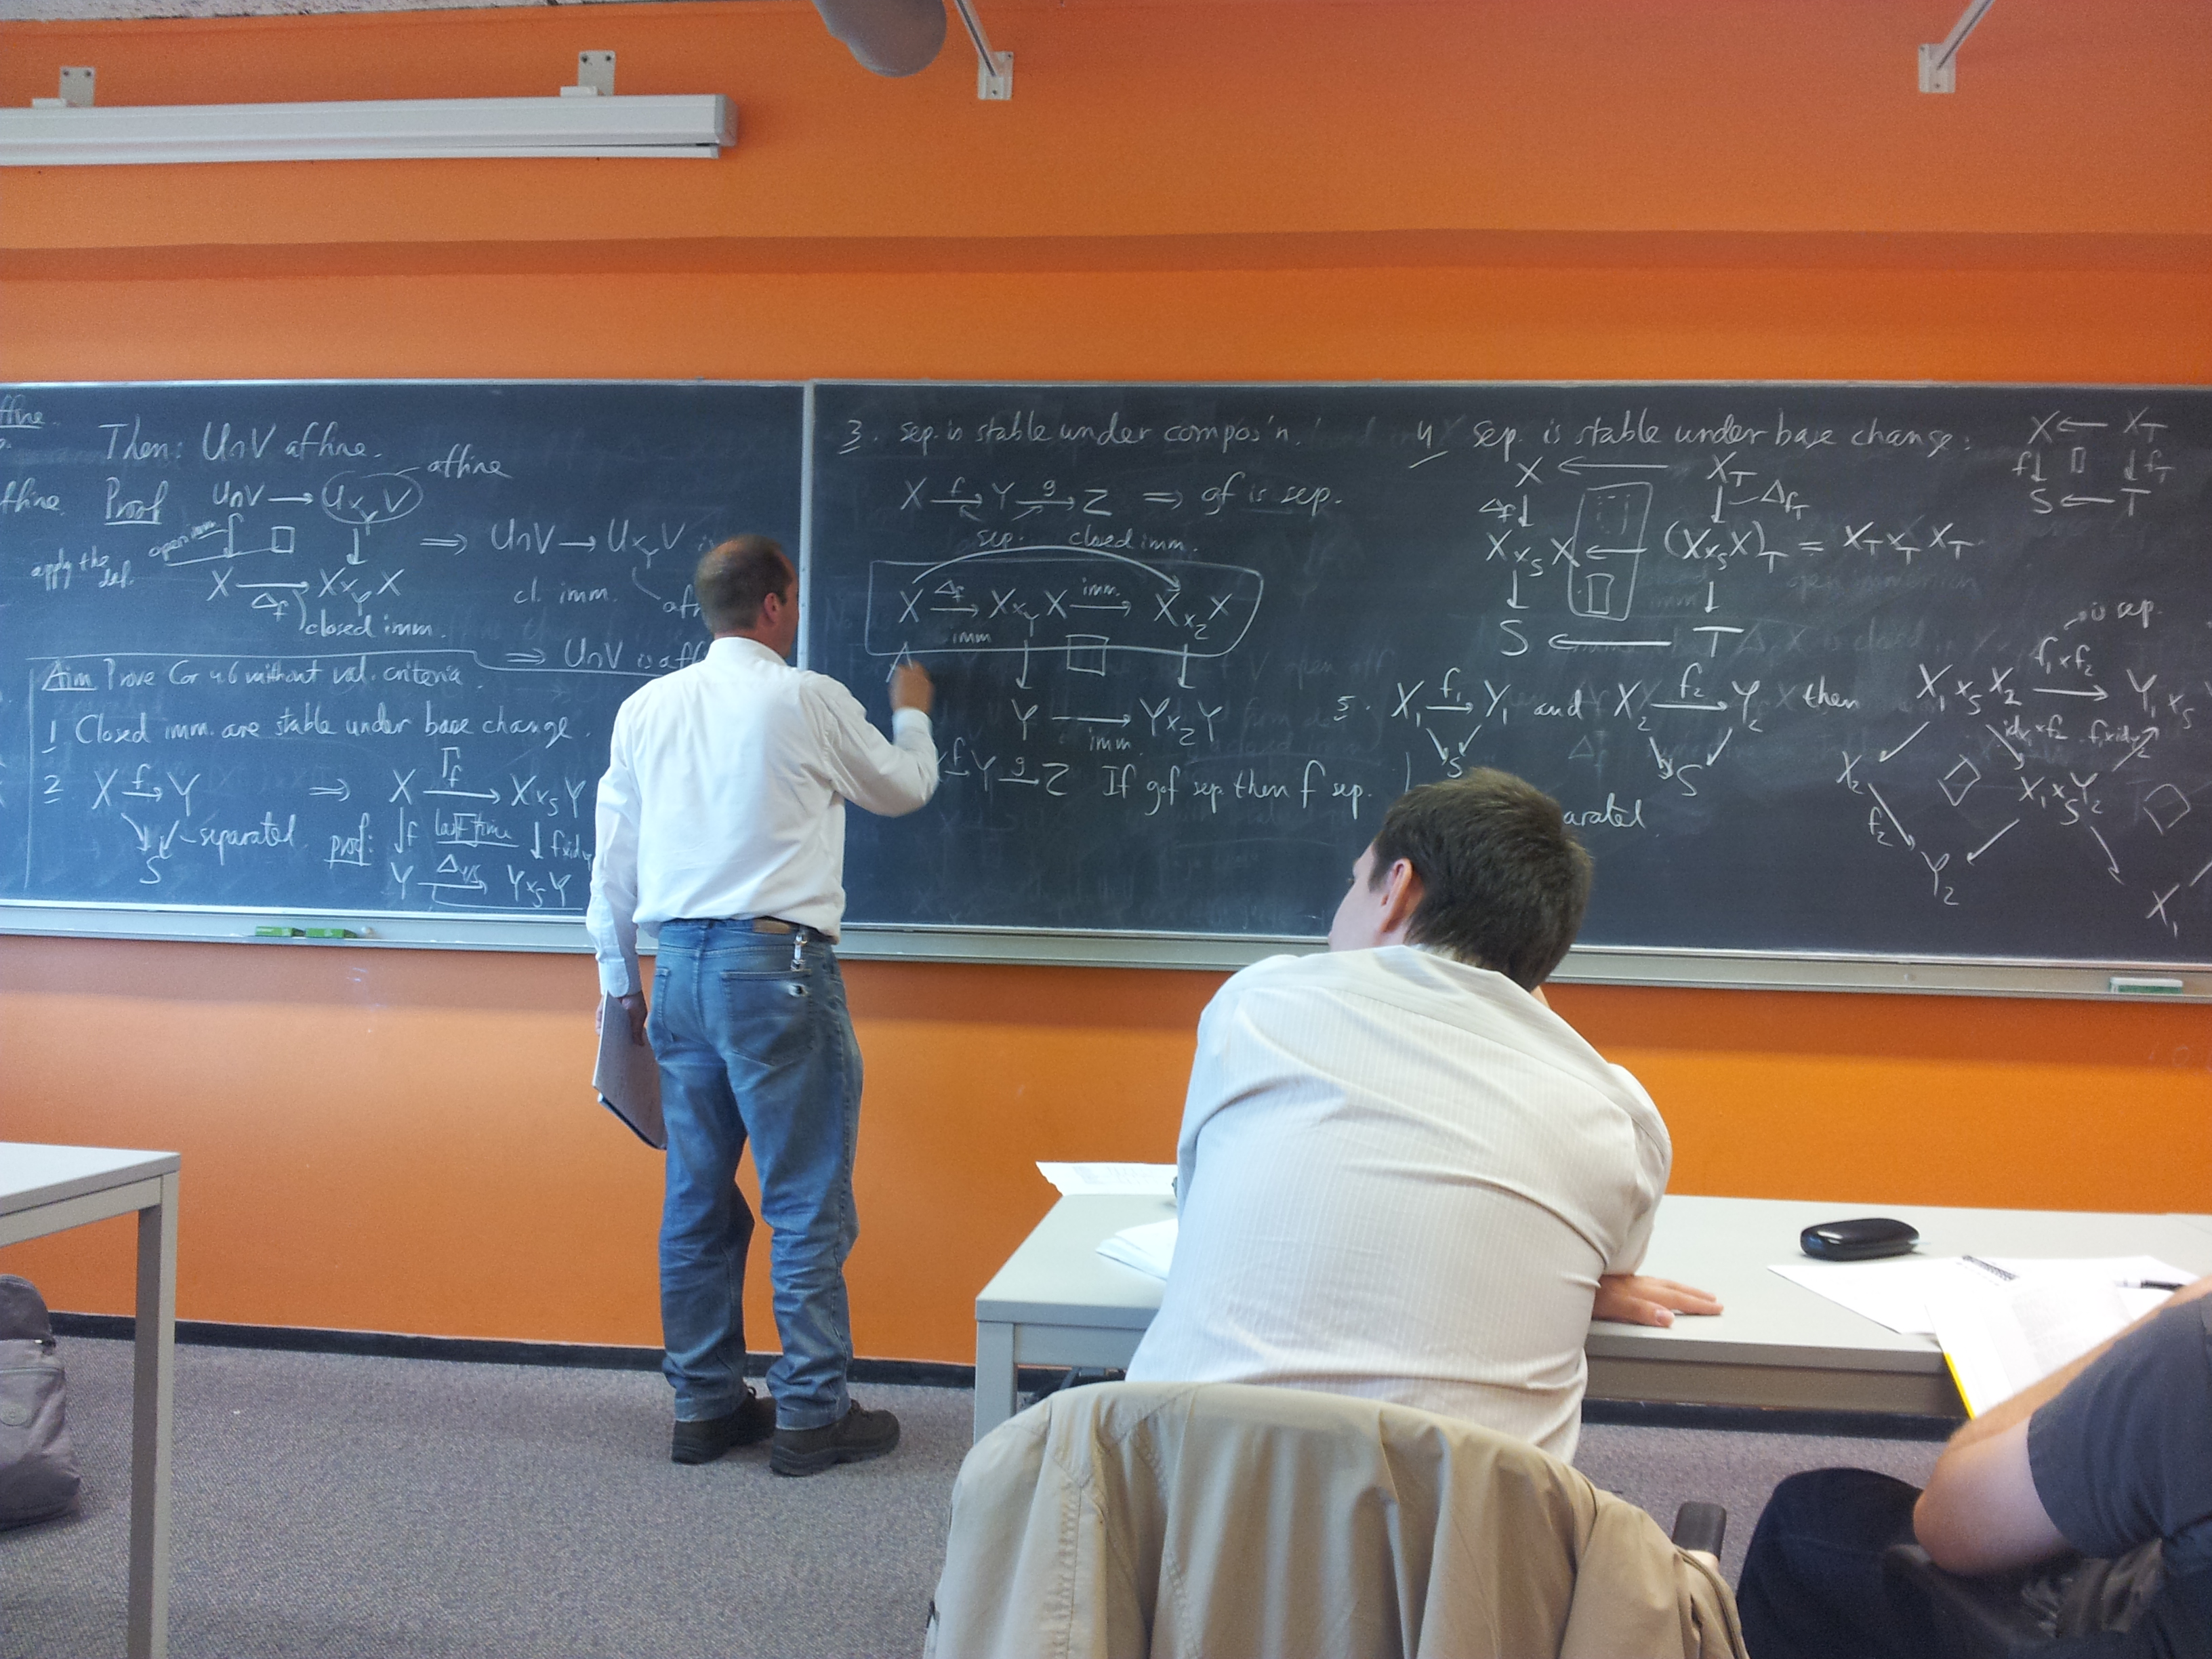 ffine.
Then: U∩V affine. affine
ffine. Proof U∩V → U×_Y V
open imm. ↓ □ ↓ ⇒ U∩V → U×_Y V
apply the def. X →^{Δ_f} X×_Y X cl. imm.
closed imm.
⇒ U∩V is
Aim Prove Cor 4.6 without val. criteria.
1 Closed imm. are stable under base change.
2 X →^f Y ⇒ X →^{Γ_f} X×_S Y
S separated. proof: ↓f last time ↓
Y →^{Δ_{Y/S}} Y×_S Y
3. sep. is stable under compos'n.
X →^f Y →^g Z ⇒ gf is sep.
sep. closed imm.
X →^{Δ_f} X×_Y X →^{imm.} X×_Z X
imm
↓ □ ↓
Y → Y×_Z Y
imm.
Y →^g Z If gf sep. then f sep.
4 sep. is stable under base change:
X ← X_T
Δ_f ↓ ↓ Δ_{f_T}
X×_S X ← (X×_S X)_T = X_T ×_T X_T
↓ □ ↓
S ← T
X ← X_T
f↓ □ ↓f_T
S ← T
5. X_1 →^{f_1} Y_1 and X_2 →^{f_2} Y_2 then X_1×_S X_2 →^{f_1×f_2} Y_1×_S
is sep.
S S
arated.
id_{X_1}×f_2
X_2 □ X_1×_S Y_2 □
f_2
Y_2 X_1